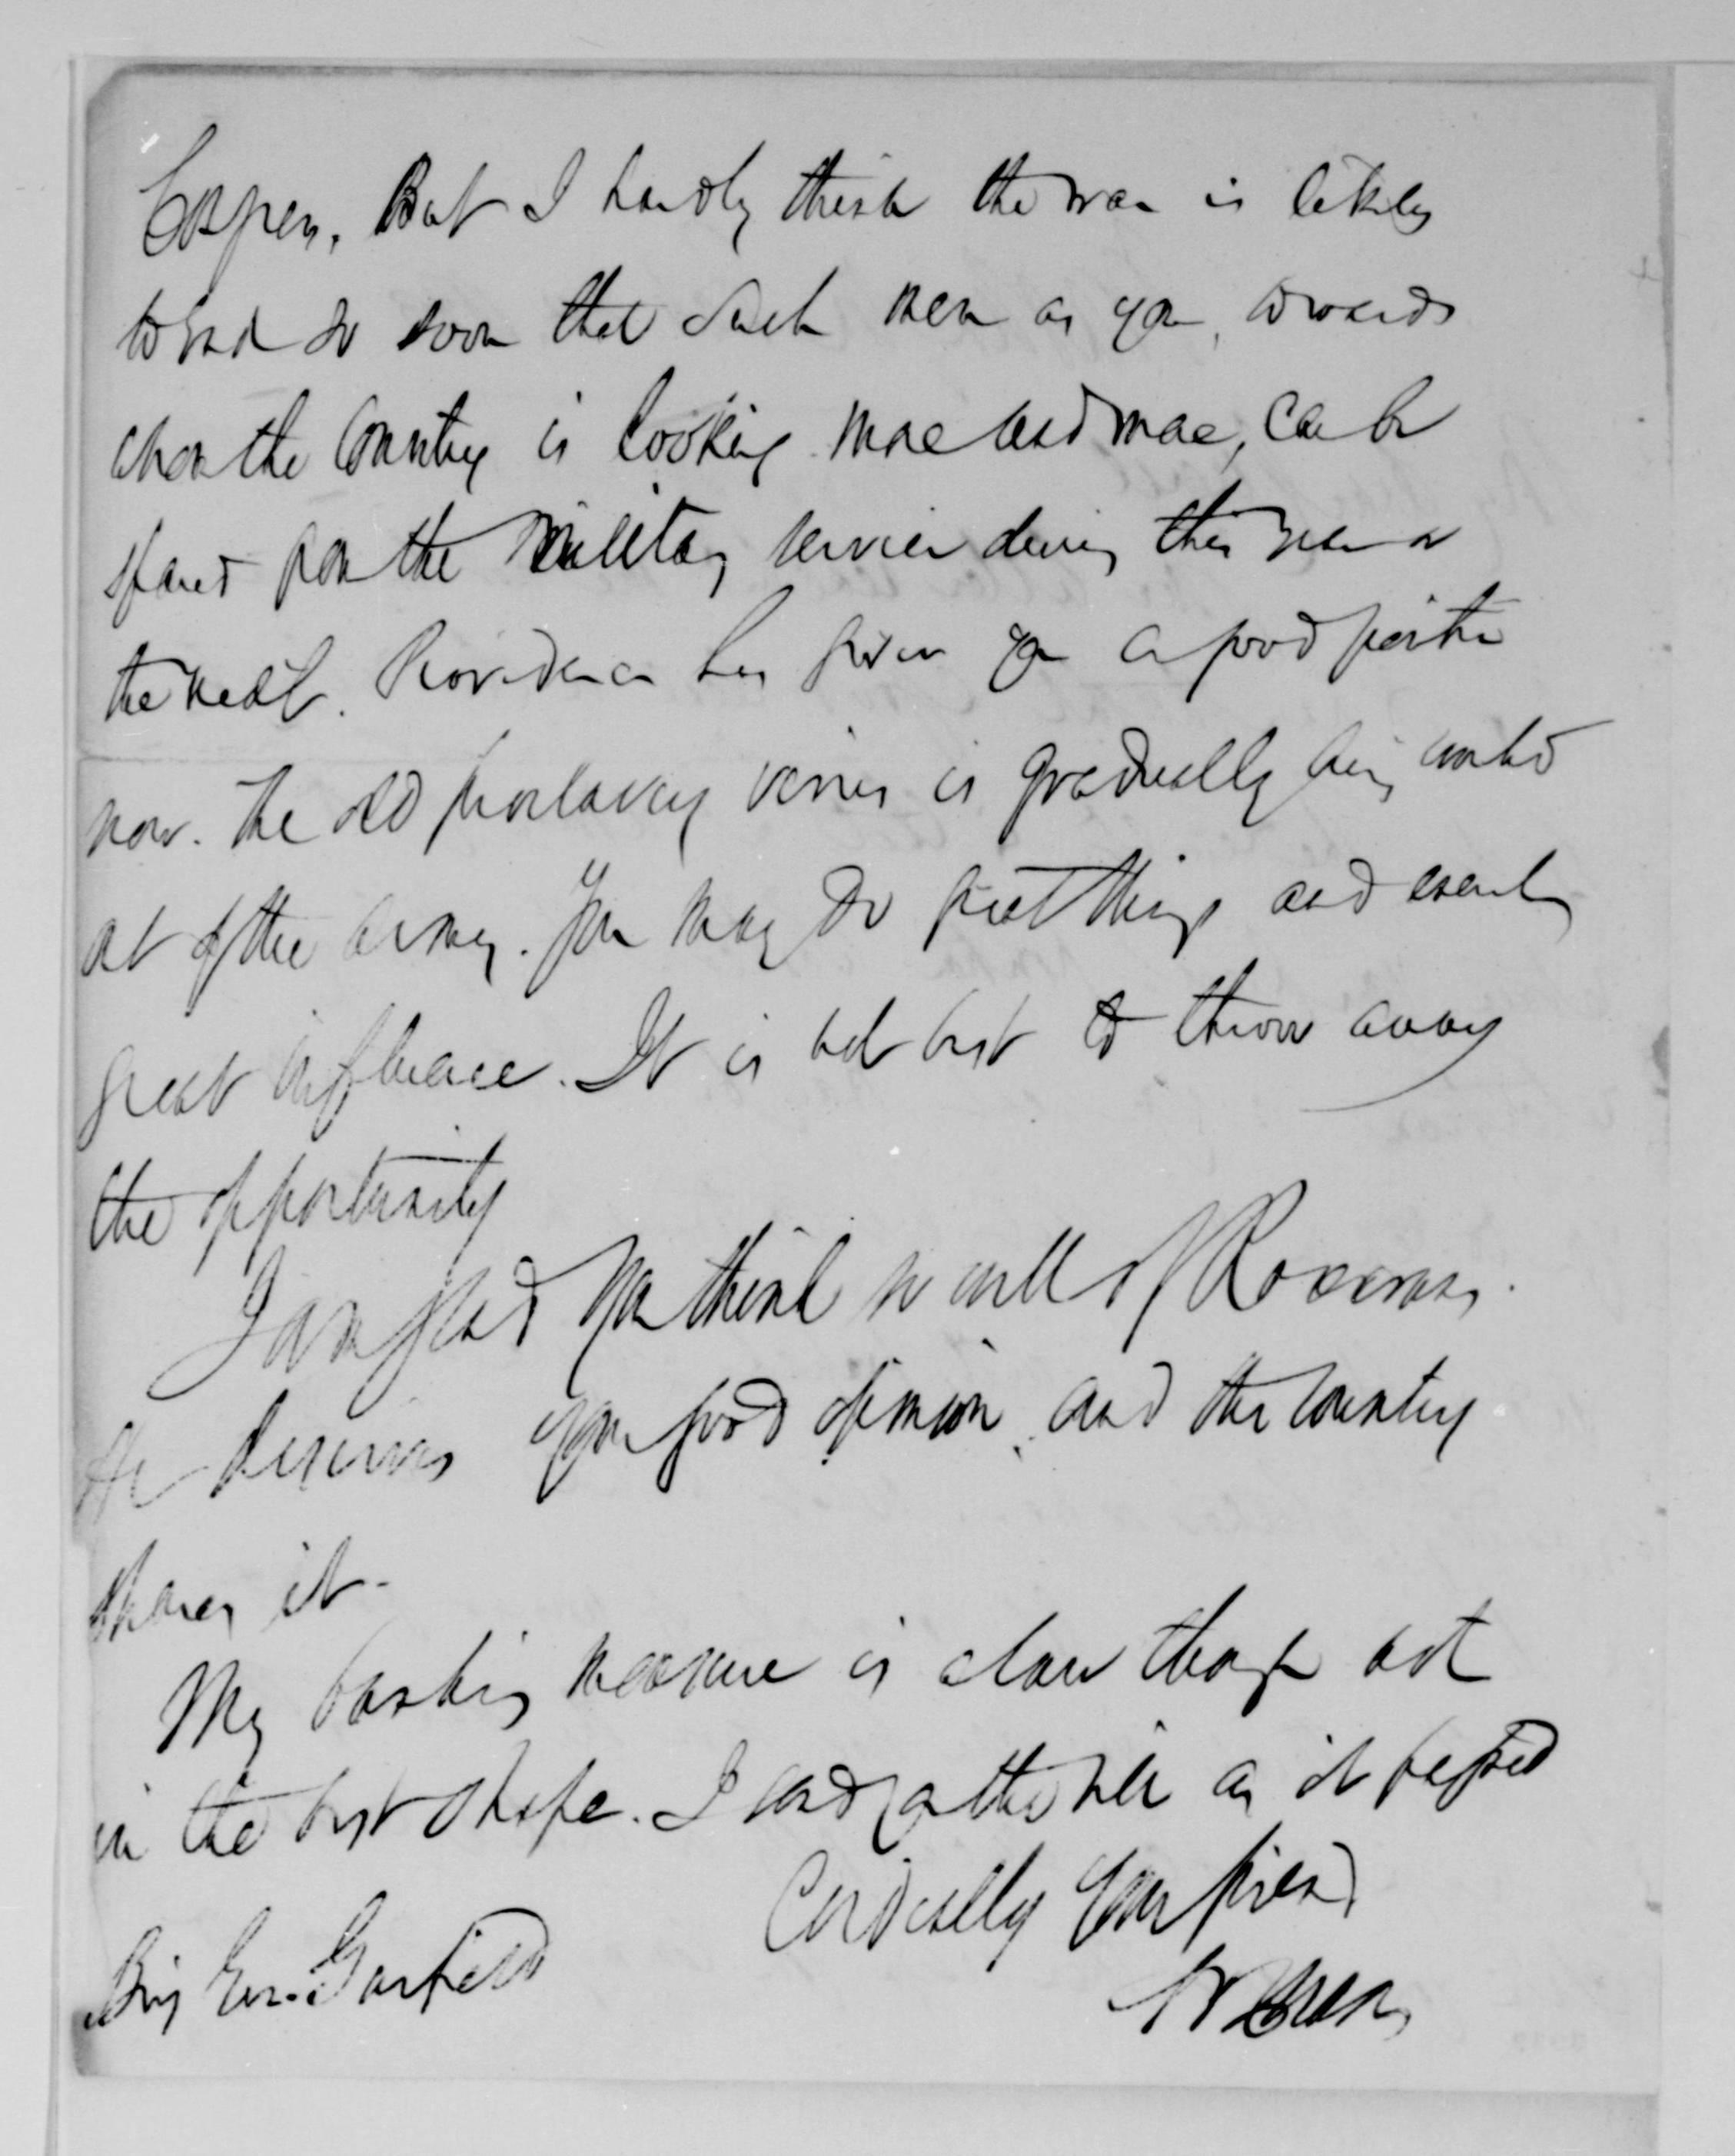 Congress. But I hardly think the war is likely
to end so soon that such men as you, towards
whom the Country is looking more and more, can be
spared from the military service during this year or
the next. Providence has given you a good position
now. The old proslavery virus is gradually being worked
out of the army. You may do great things and exert
great influence. It is not best to throw away
the opportunity
I am glad you think so well of Rosecrans.
He deserves your good opinion, and the country
shares it.
My banking measure is a law though not
in the best shape. I send you the bill as it passed
Cordially your friend
Brig Gen. Garfield
S P Chase